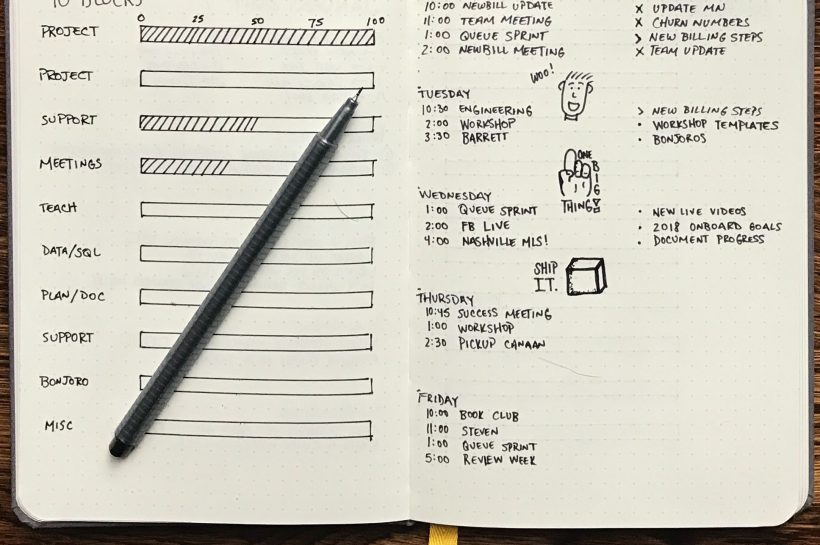 10 BLOCKS
0 25 50 75 100
PROJECT
PROJECT
SUPPORT
MEETINGS
TEACH
DATA/SQL
PLAN/DOC
SUPPORT
BONJORO
MISC
10:00 NEWBILL UPDATE
11:00 TEAM MEETING
1:00 QUEUE SPRINT
2:00 NEWBILL MEETING
X UPDATE MN
X CHURN NUMBERS
> NEW BILLING STEPS
X TEAM UPDATE
WOO!
TUESDAY
10:30 ENGINEERING
2:00 WORKSHOP
3:30 BARRETT
> NEW BILLING STEPS
• WORKSHOP TEMPLATES
• BONJOROS
ONE
BIG
THING
WEDNESDAY
1:00 QUEUE SPRINT
2:00 FB LIVE
4:00 NASHVILLE MLS!
• NEW LIVE VIDEOS
• 2018 ONBOARD GOALS
• DOCUMENT PROGRESS
SHIP
IT.
THURSDAY
10:45 SUCCESS MEETING
1:00 WORKSHOP
2:30 PICKUP CANAAN
FRIDAY
10:00 BOOK CLUB
11:00 STEVEN
1:00 QUEUE SPRINT
5:00 REVIEW WEEK